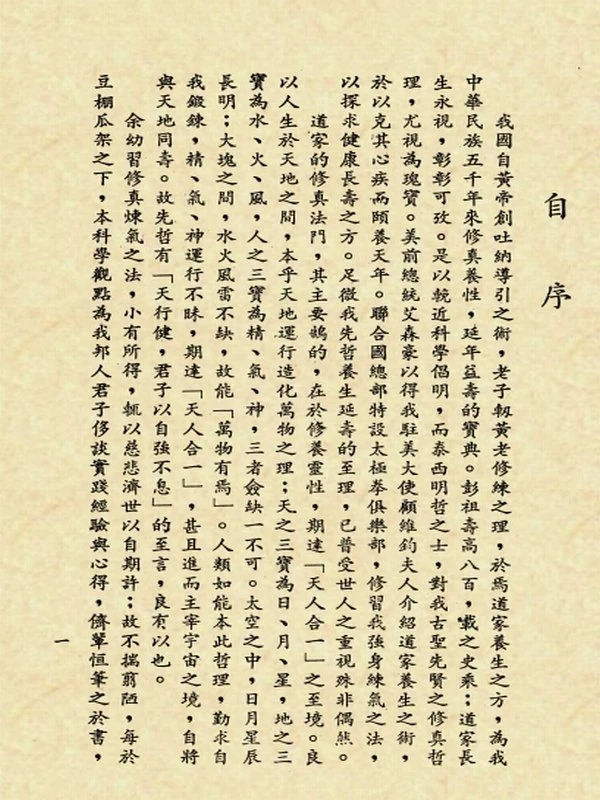 自序
我國自黃帝創吐納導引之術，老子軔黃老修練之理，於焉道家養生之方，為我
中華民族五千年來修真養性，延年益壽的寶典。彭祖壽高八百，載之史乘；道家長
生永視，彰彰可攷。是以輓近科學倡明，而泰西明哲之士，對我古聖先賢之修真哲
理，尤視為瑰寶。美前總統艾森豪以得我駐美大使顧維鈞夫人介紹道家養生之術，
於以克其心疾而頤養天年。聯合國總部特設太極拳俱樂部，修習我強身練氣之法，
以探求健康長壽之方。足徵我先哲養生延壽的至理，已普受世人之重視殊非偶然。
道家的修真法門，其主要鵠的，在於修養靈性，期達「天人合一」之至境。良
以人生於天地之間，本乎天地運行造化萬物之理；天之三寶為日、月、星，地之三
寶為水、火、風，人之三寶為精、氣、神，三者僉缺一不可。太空之中，日月星辰
長明；大塊之間，水火風雷不缺，故能「萬物有焉」。人類如能本此哲理，勤求自
我鍛鍊，精、氣、神運行不昧，期達「天人合一」，甚且進而主宰宇宙之境，自將
與天地同壽。故先哲有「天行健，君子以自強不息」的至言，良有以也。
余幼習修真煉氣之法，小有所得，輒以慈悲濟世以自期許；故不揣翦陋，每於
豆棚瓜架之下，本科學觀點為我邦人君子侈談實踐經驗與心得，儕輩恒筆之於書，
一